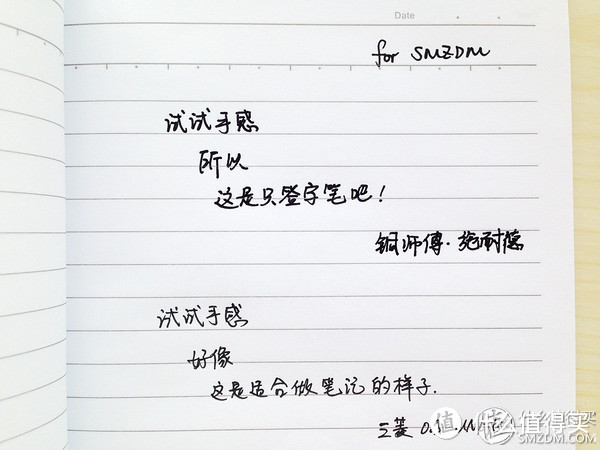 Date
for SMZDM
试试手感
所以
这是只签字笔吧！
铜师傅·施耐德
试试手感
好像
这是适合做笔记的样子.
三菱
值得买
SMZDM.COM